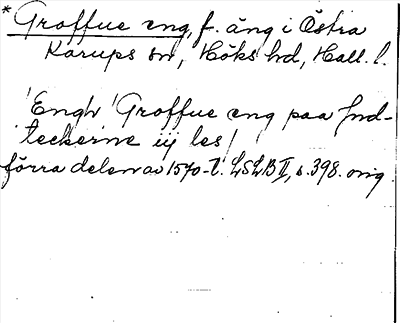 * Groffue eng, f. äng i Östra
Karups sn, Höks hd, Hall. l.
'Engh' Groffue eng paa Jnd-
teckerne iij les/
förra delen av 1570-t. LSLB II, s. 398. orig.